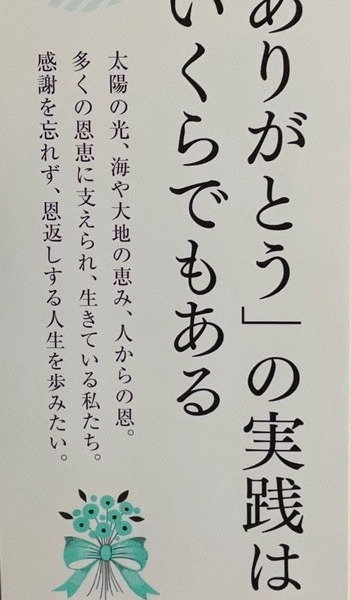 ありがとう」の実践は
いくらでもある
太陽の光、海や大地の恵み、人からの恩。
多くの恩恵に支えられ、生きている私たち。
感謝を忘れず、恩返しする人生を歩みたい。